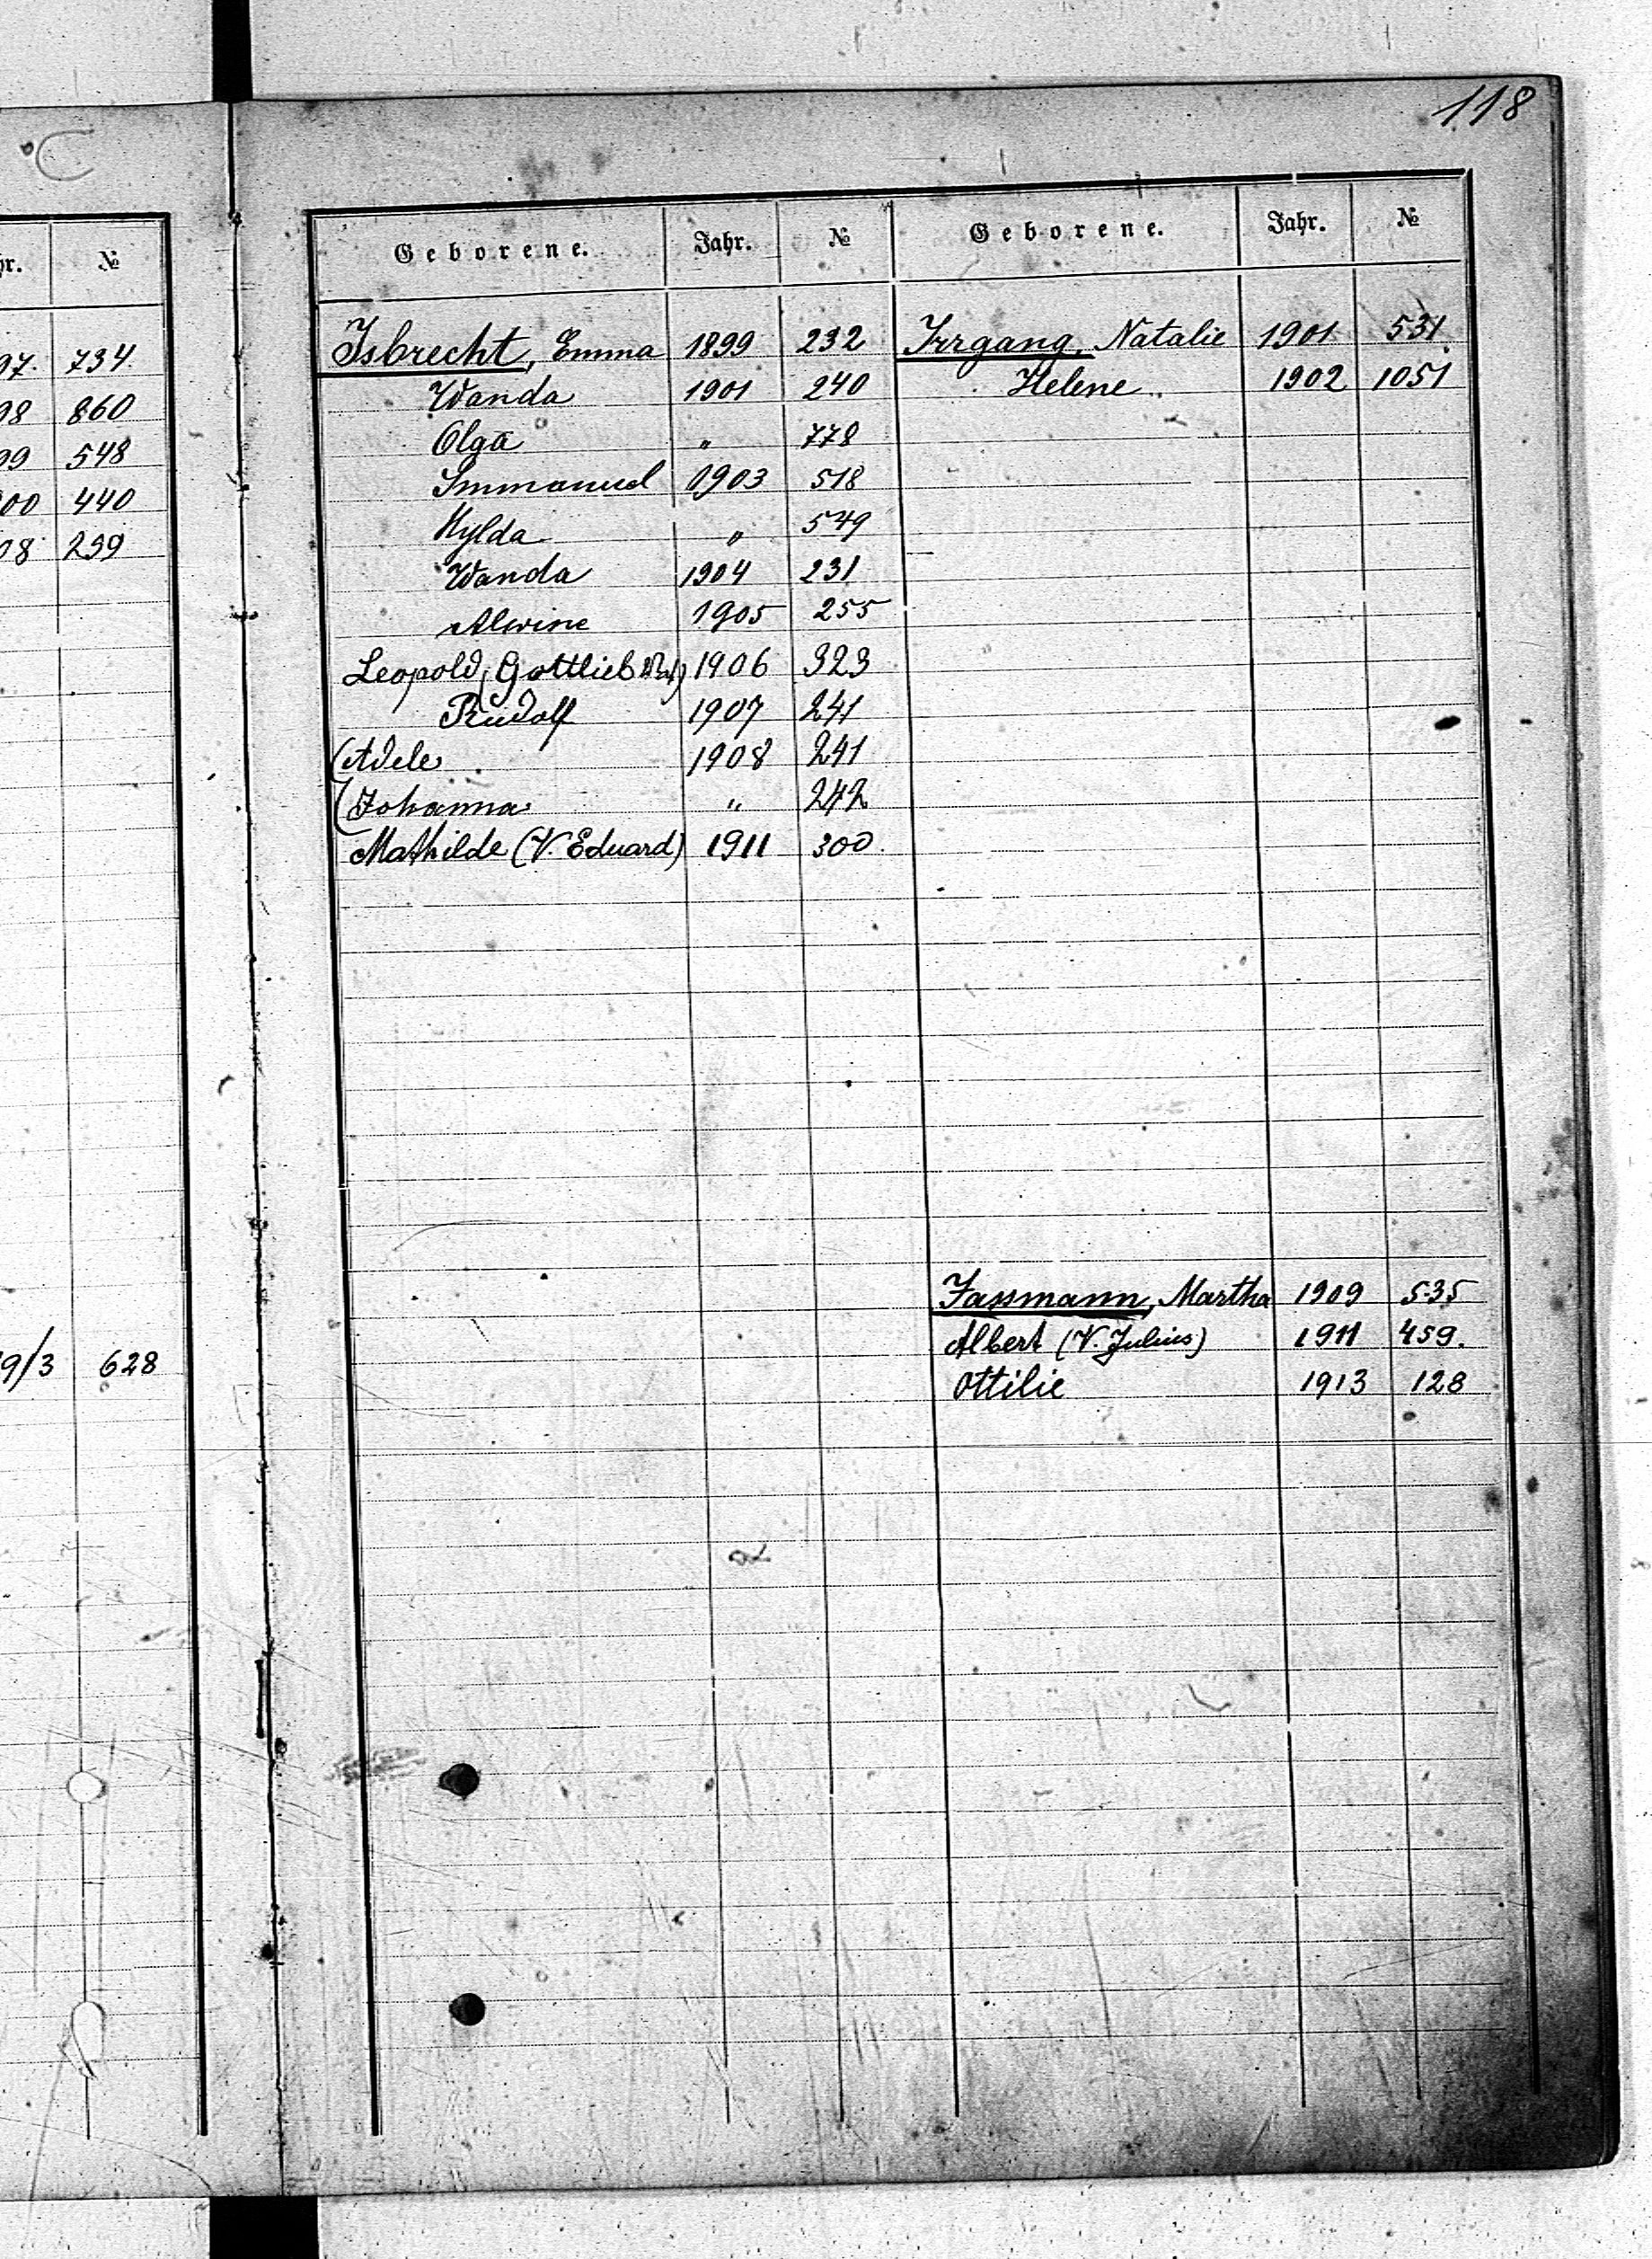 118
hr. №
97. 734.
98 860
99 548
00 440
08 299
19/3 628
Geborene. Jahr. № Geborene. Jahr. №
Isbrecht, Emma 1899 232 Irrgang, Natalie 1901 531.
Wanda 1901 240 Helene 1902 1051
Olga " 778
Immanuel 1903 518
Hylda " 549
Wanda 1904 231
Alwine 1905 255
Leopold (Gottlieb) 1906 323
Rudolf 1907 241
(Adele 1908 241
(Johanna " 242
Mathilde (V. Eduard) 1911 300.
Jassmann, Martha 1909 535
Albert (V. Julius) 1911 459.
Ottilie 1913 128